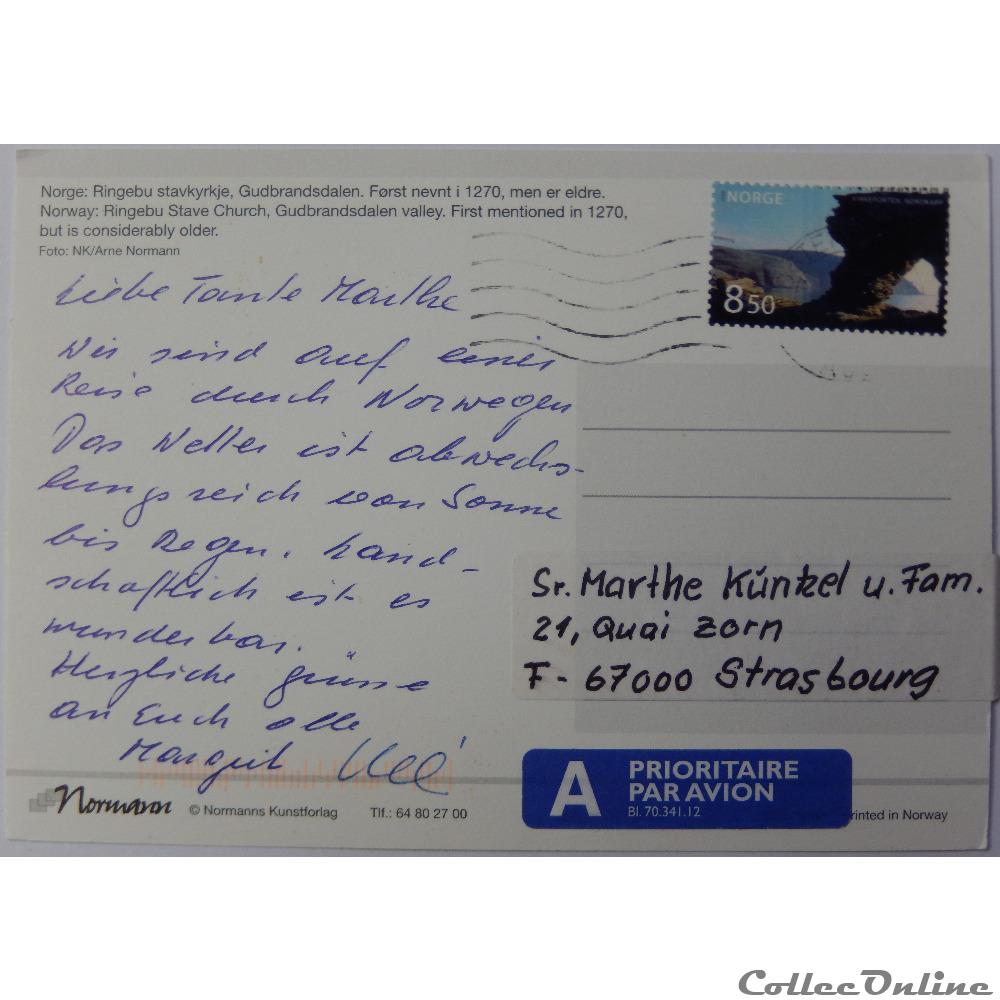 Norge: Ringebu stavkyrkje, Gudbrandsdalen. Først nevnt i 1270, men er eldre.
Norway: Ringebu Stave Church, Gudbrandsdalen valley. First mentioned in 1270,
but is considerably older.
Foto: NK/Arne Normann
NORGE
KIRKEPORTEN, NORDKAPP
8 50
Liebe Tante Marthe
Wir sind auf einer
Reise durch Norwegen
Das Wetter ist abwechs-
lungsreich von Sonne
bis Regen. Land-
schaftlich ist es
wunderbar.
Herzliche Grüsse
an Euch alle
Margrit
Sr. Marthe Künkel u. Fam.
21, Quai Zorn
F - 67000 Strasbourg
A PRIORITAIRE
PAR AVION
Bl. 70.341.12
Normann © Normanns Kunstforlag Tlf.: 64 80 27 00
Printed in Norway
CollecOnline